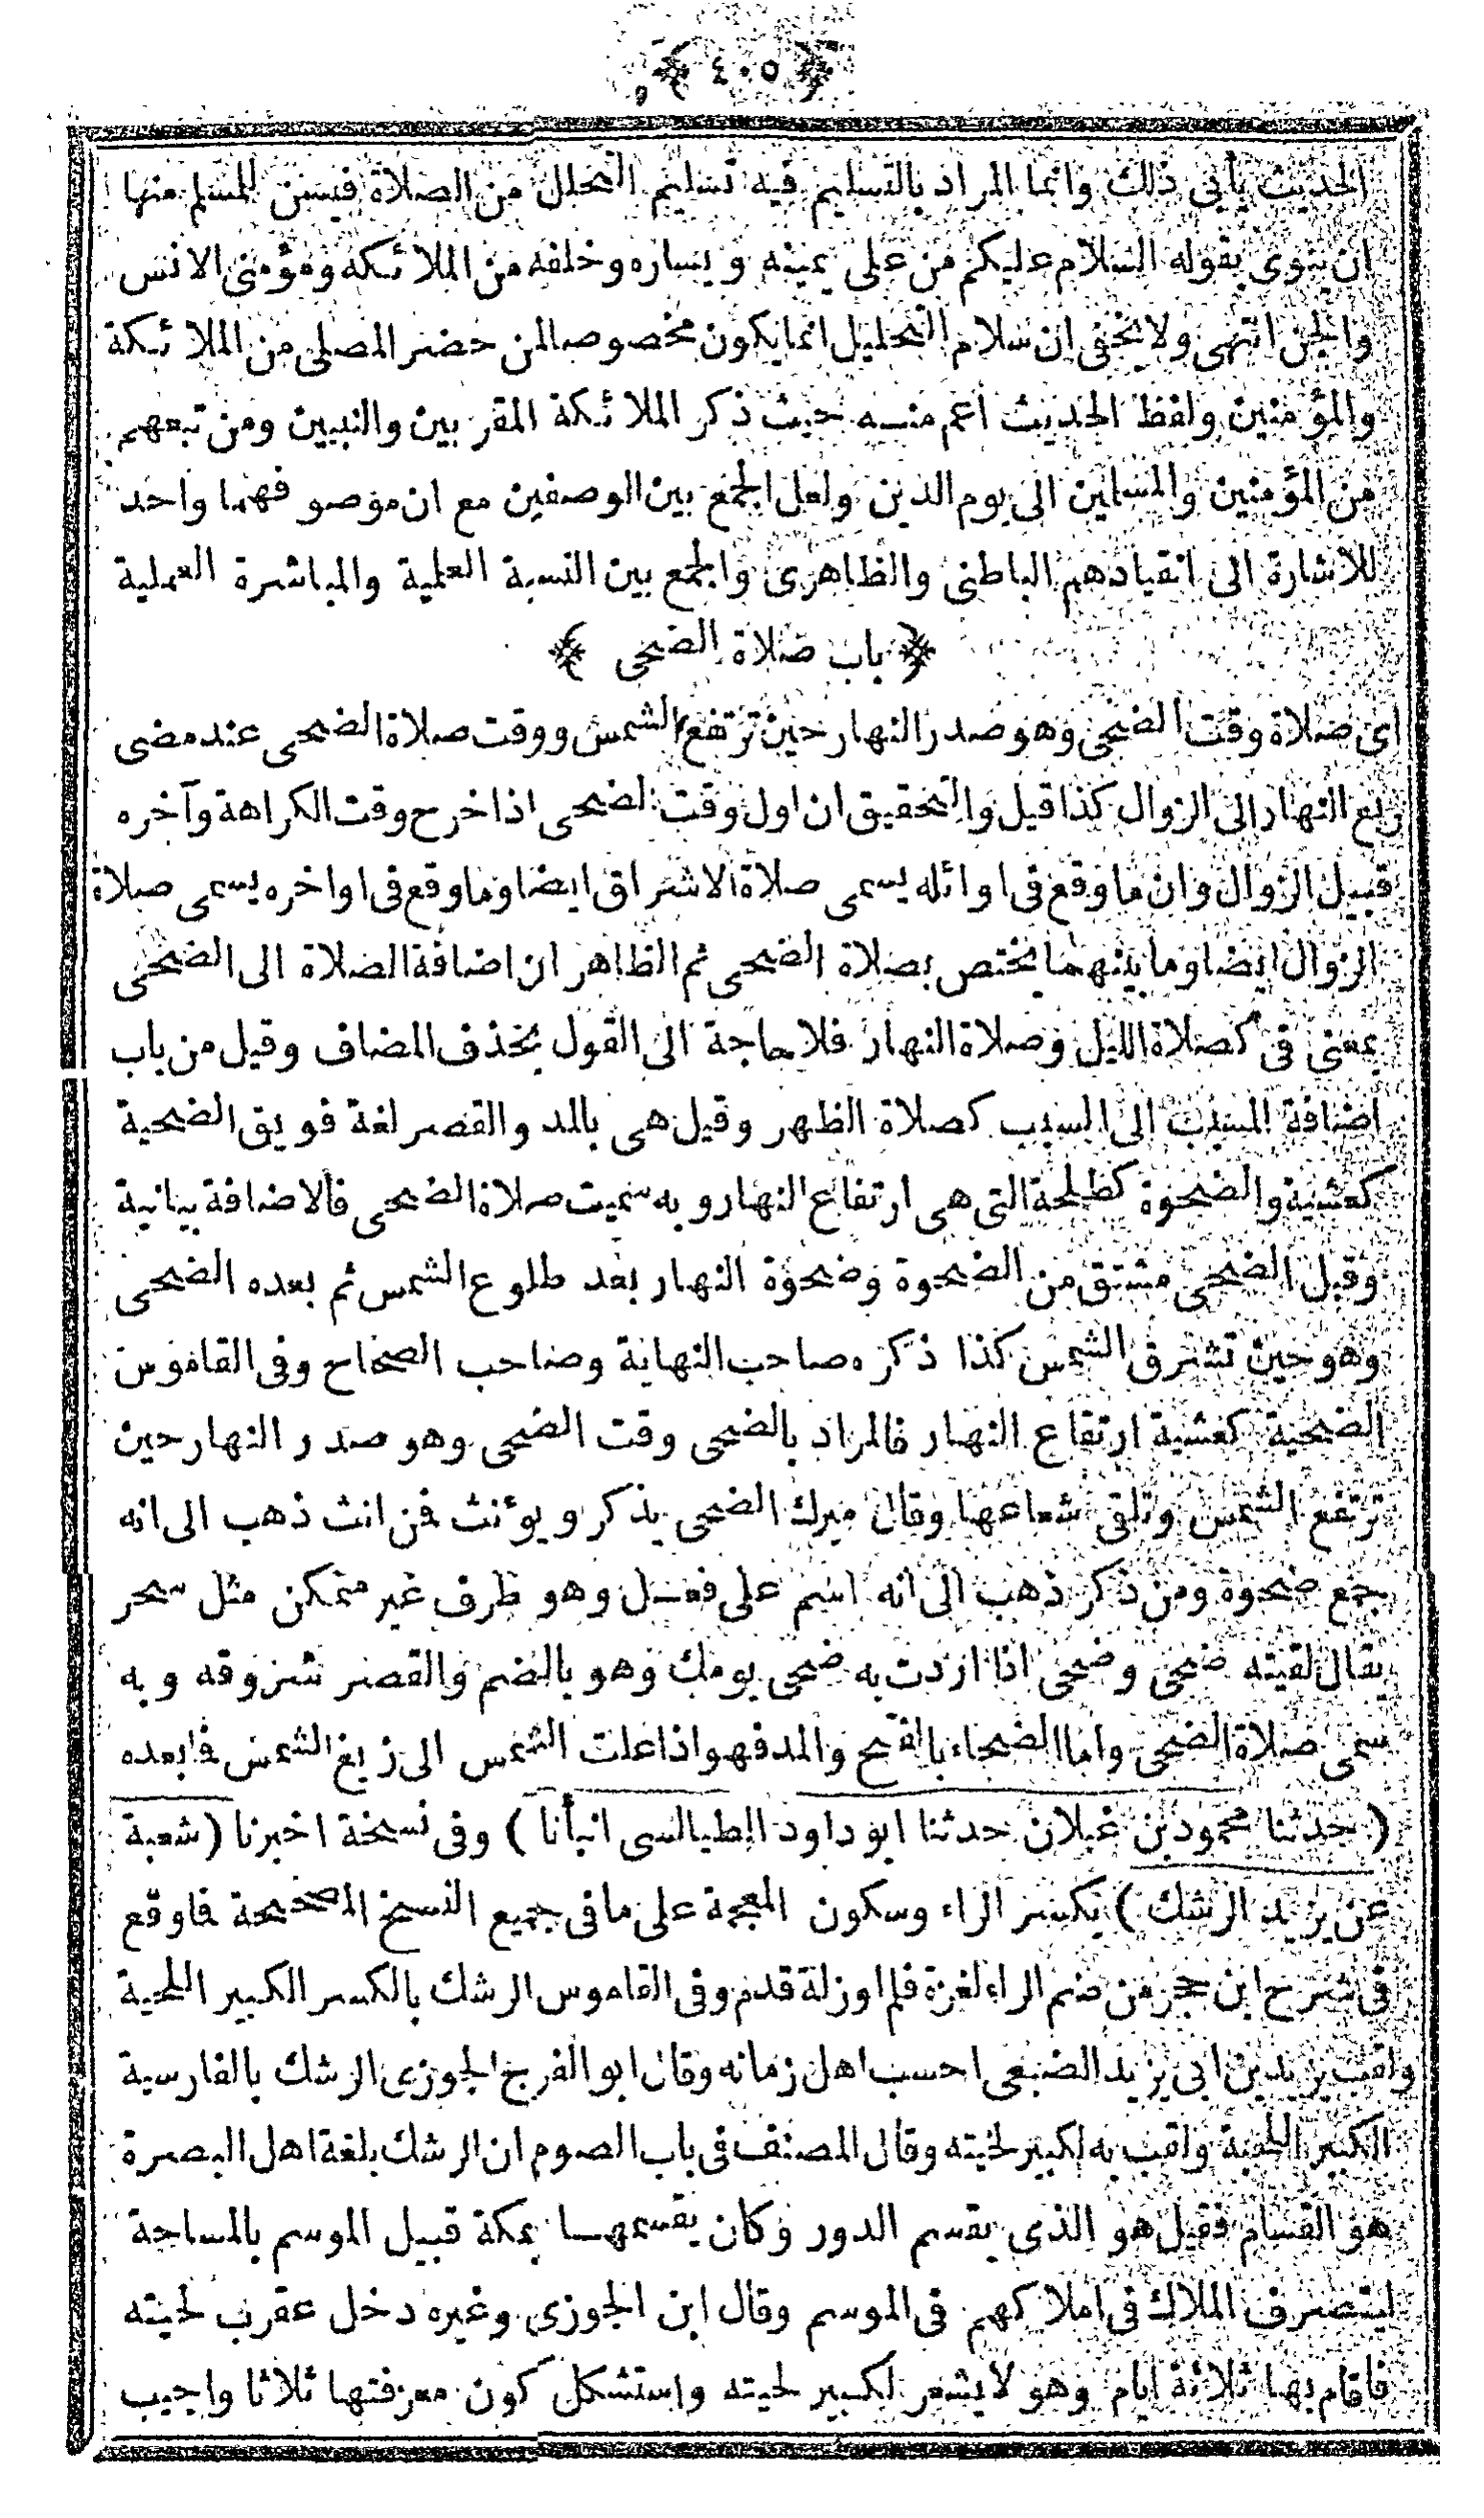 ﴿ ٤٠٥ ﴾
الحديث يأبى ذلك وانما المراد بالتسليم فيه تسليم التحلل من الصلاة فيسن للمسلم منها
ان ينوى بقوله السلام عليكم من على يمينه ويساره وخلفه من الملائكة ومؤمنى الانس
والجن انتهى ولا يخفى ان سلام التحليل انما يكون مخصوصا لمن حضر المصلى من الملائكة
والمؤمنين ولفظ الحديث اعم منه حيث ذكر الملائكة المقربين والنبيين ومن تبعهم
من المؤمنين والمسلمين الى يوم الدين ولعل الجمع بين الوصفين مع ان موصوفهما واحد
للاشارة الى انقيادهم الباطنى والظاهرى والجمع بين النسبة العلمية والمباشرة العملية
﴿ باب صلاة الضحى ﴾
اى صلاة وقت الضحى وهو صدر النهار حين ترتفع الشمس ووقت صلاة الضحى عند مضى
ربع النهار الى الزوال كذا قيل والتحقيق ان اول وقت الضحى اذا خرج وقت الكراهة وآخره
قبيل الزوال وان ما وقع فى اوائله يسمى صلاة الاشراق ايضا وما وقع فى اواخره يسمى صلاة
الزوال ايضا وما بينهما يختص بصلاة الضحى ثم الظاهر ان اضافة الصلاة الى الضحى
بمعنى فى كصلاة الليل وصلاة النهار فلا حاجة الى القول بحذف المضاف وقيل من باب
اضافة المسبب الى السبب كصلاة الظهر وقيل هى بالمد والقصر لغة فويق الضحية
كعشية والضحوة كطلحة التى هى ارتفاع النهار وبه سميت صلاة الضحى فالاضافة بيانية
وقيل الضحى مشتق من الضحوة وضحوة النهار بعد طلوع الشمس ثم بعده الضحى
وهو حين تشرق الشمس كذا ذكره صاحب النهاية وصاحب الصحاح وفى القاموس
الضحية كعشية ارتفاع النهار فالمراد بالضحى وقت الضحى وهو صدر النهار حين
ترتفع الشمس وتلقى شعاعها وقال ميرك الضحى يذكر ويؤنث فمن انث ذهب الى انه
جمع ضحوة ومن ذكر ذهب الى انه اسم على فعل وهو ظرف غير متمكن مثل سحر
يقال لقيته ضحى وضحى اذا اردت به ضحى يومك وهو بالضم والقصر شروقه وبه
سمى صلاة الضحى واما الضحاء بالفتح والمد فهو اذا علت الشمس الى زيغ الشمس فما بعده
( حدثنا محمود بن غيلان حدثنا ابو داود الطيالسى انبأنا ) وفى نسخة اخبرنا ( شعبة
عن يزيد الرشك ) بكسر الراء وسكون المعجمة على ما فى جميع النسخ المصححة فما وقع
فى شرح ابن حجر من ضم الراء لغزة قلم او زلة قدم وفى القاموس الرشك بالكسر الكبير اللحية
ولقب يزيد بن ابى يزيد الضبعى احسب اهل زمانه وقال ابو الفرج الجوزى الرشك بالفارسية
الكبير اللحية ولقب به لكبير لحيته وقال المصنف فى باب الصوم ان الرشك بلغة اهل البصرة
هو القسام فقيل هو الذى يقسم الدور وكان يقسمها بمكة قبيل الموسم بالمساحة
ليتصرف الملاك فى املاكهم فى الموسم وقال ابن الجوزى وغيره دخل عقرب لحيته
فاقام بها ثلاثة ايام وهو لا يشعر لكبير لحيته واستشكل كون معرفتها ثلاثا واجيب